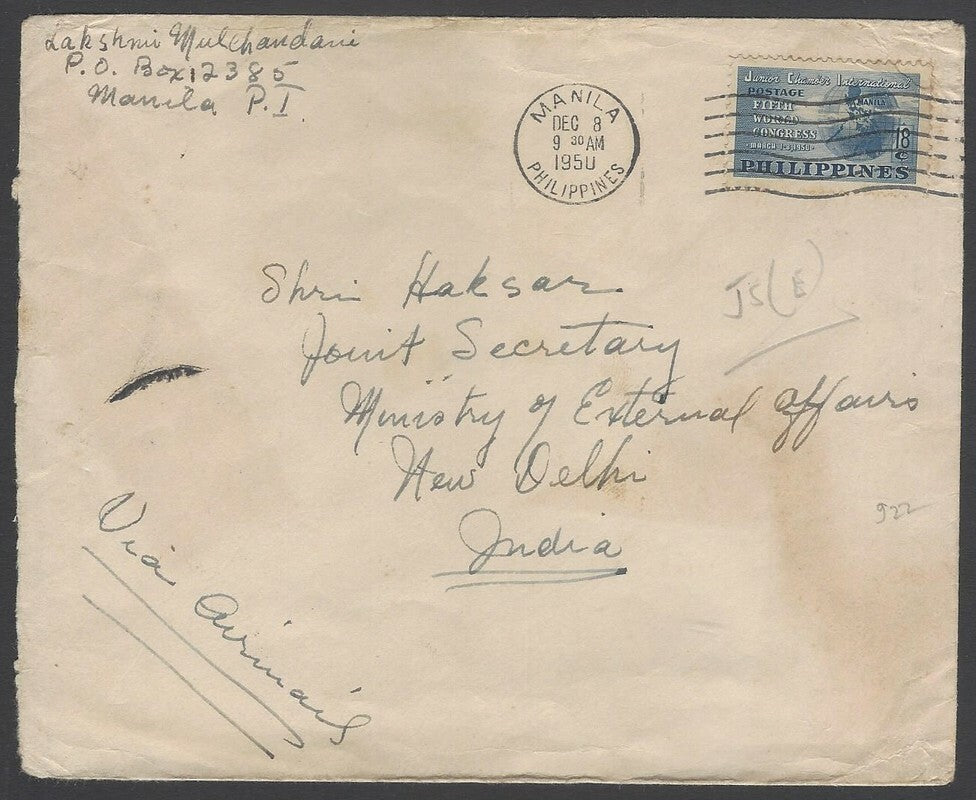 Lakshmi Mulchandani
P.O. Box 12385
Manila P.I.
MANILA
DEC 8
9 30 AM
1950
PHILIPPINES
Junior Chamber International
POSTAGE
FIFTH
WORLD
CONGRESS
MARCH 1-8, 1950
MANILA
18
c
PHILIPPINES
Shri Haksar
JS(E)
Joint Secretary
Ministry of External Affairs
New Delhi
India
922
Via Airmail